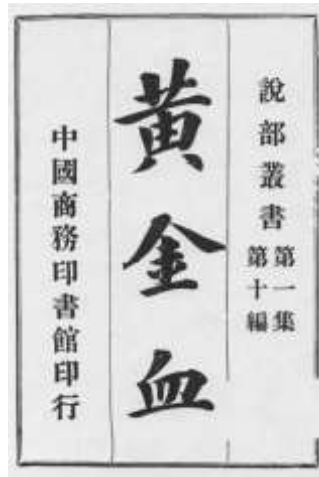 說部叢書
第一集
第十編
黃金血
中國商務印書館印行